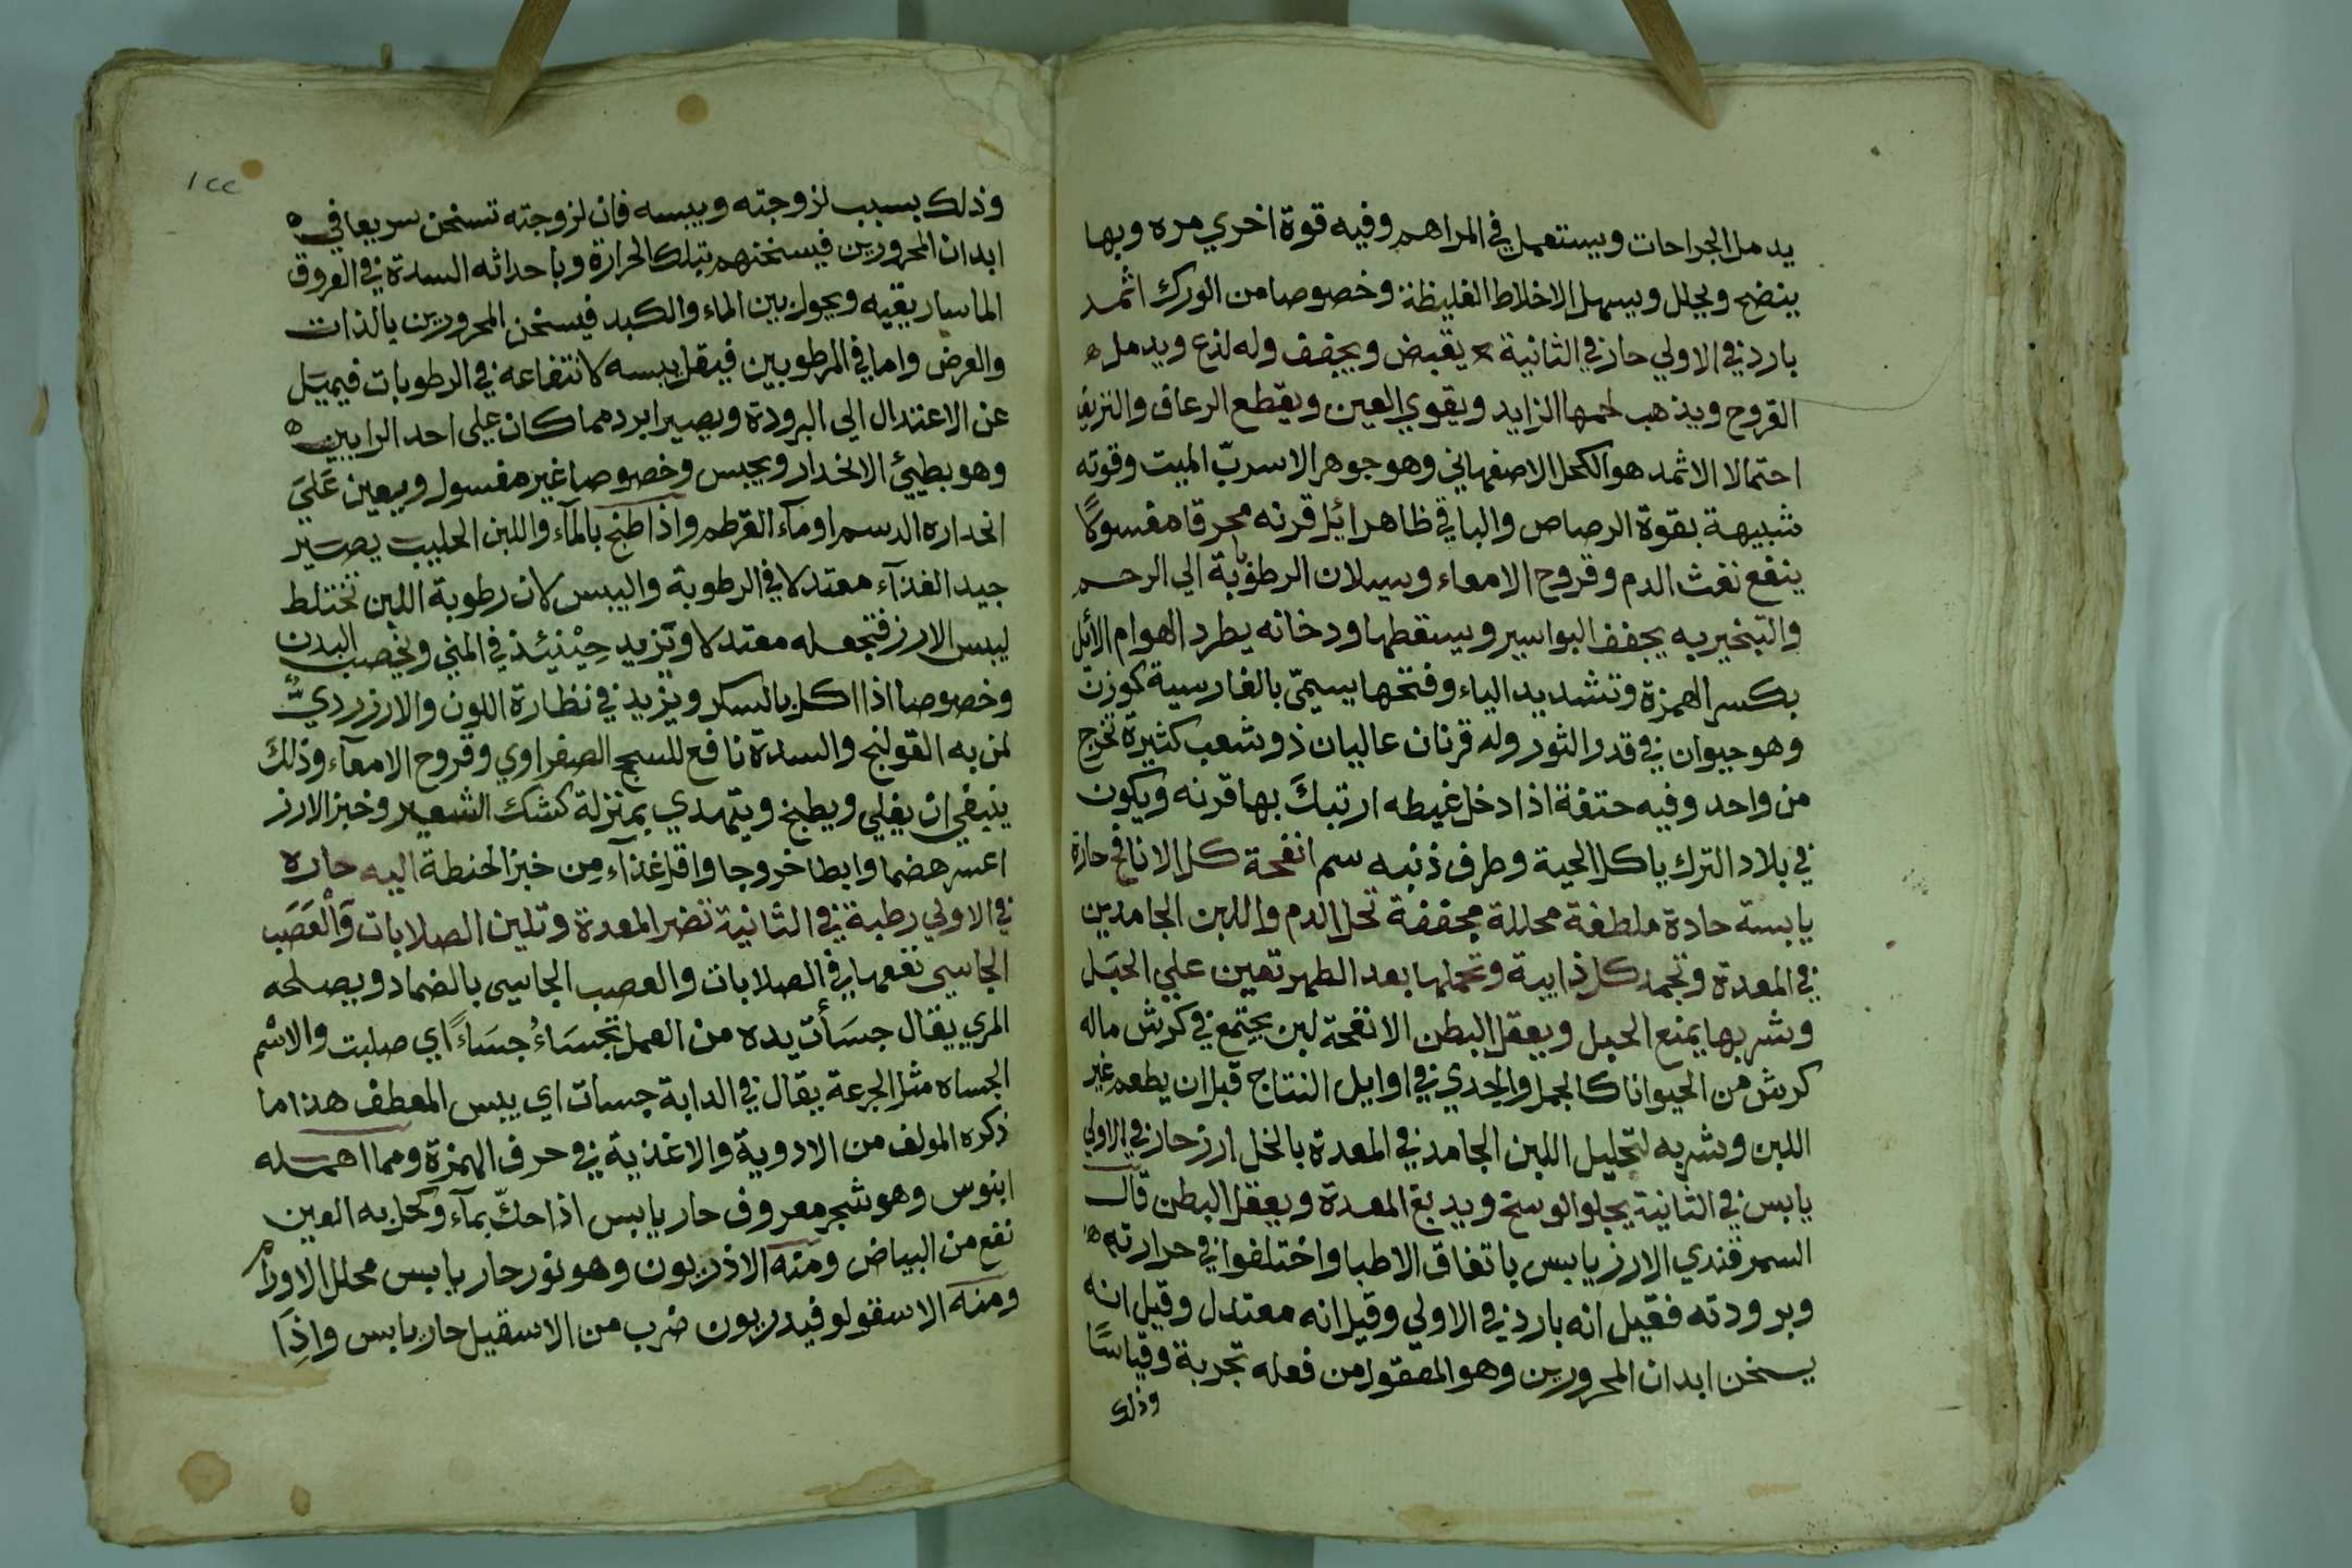 يدمل الجراحات ويستعمل في المراهم وفيه قوة اخري مره وبها
ينضج ويحلل ويسهل الاخلاط الغليظة وخصوصا من الورك اثمد
بارد في الاولي حار في الثانية يقبض ويجفف وله لذع ويدمل
القروح ويذهب لحمها الزايد ويقوي العين ويقطع الرعاف والنزيف
احتمالا الاثمد هو الكحل الاصفهاني وهو جوهر الاسربّ الميت وقوته
شبيهة بقوة الرصاص والباقي ظاهر ائل قرنه محرقا مغسولًا
ينفع نفث الدم وقروح الامعاء وسيلان الرطوبة الي الرحم
والتبخير به يجفف البواسير ويسقطها ودخانه يطرد الهوام الأئل
بكسر الهمزة وتشديد الياء وفتحها يسمّى بالفارسية كوزن
وهو حيوان في قدر الثور وله قرنان عاليان ذو شعب كثيرة تخرج
من واحد وفيه حتفة اذا دخل غيطه ارتبكَ بها قرنه ويكون
في بلاد الترك ياكل الحية وطرف ذنبه سم انفحة كل الانافح حارة
يابسة حادة ملطفة محللة مجففة تحل الدم واللبن الجامدين
في المعدة وتجمد كل ذايبة وتحملها بعد الطهر تعين علي الحبَل
وشربها يمنع الحبل ويعقل البطن الانفحة لبن يجتمع في كرش ماله
كرش من الحيوانا كالجمل والجدي في اوايل النتاج قبل ان يطعم غير
اللبن وشربه لتحليل اللبن الجامد في المعدة بالخل ارز حار في الاولي
يابس في الثانية يجلو الوسخ ويدبغ المعدة ويعقل البطن قال
السمرقندي الارز يابس باتفاق الاطبا واختلفوا في حرارته
وبرودته فقيل انه بارد في الاولي وقيل انه معتدل وقيل انه
يسخن ابدان المحرورين وهو المعقول من فعله تجربة وقياسًا
وذلك
١٢٢
وذلك بسبب لزوجته ويبسه فان لزوجته تسخن سريعا في
ابدان المحرورين فيسخنهم بتلك الحرارة وباحداثه السدة في العروق
الماساريقيه ويحول بين الماء والكبد فيسخن المحرورين بالذات
والعرض واما في المرطوبين فيقل يبسه لانتفاعه في الرطوبات فيميَل
عن الاعتدال الى البرودة ويصير ابرد مما كان علي احد الرايين
وهو بطيئ الانحدار ويحبس وخصوصا غير مغسول ويعين عَليَ
انحداره الدسم او مآء القرطم واذا طبخ بالمآء واللبن الحليب يصَير
جيد الغذآء معتدلا في الرطوبة واليبس لان رطوبة اللبن تختلط
ليبس الارز فتجعله معتدلا وتزيد حِيْنئِذ في المني ويخصب البدن
وخصوصا اذا اكل بالسكر ويزيد في نظارة اللون والارز رديٌّ
لمن به القولنج والسدة نافع للسحج الصفراوي وقروح الامعآء وذلكَ
ينبغي ان يغلي ويطبخ ويتهدي بمنزلة كشك الشعير وخبز الارز
اعسر هضما وابطا خروجا واقل غذآء مِن خبز الحنطة اليه حاره
في الاولي رطبة في الثانية تضر المعدة وتلين الصلابات وَالْعَصَب
الجاسي نفعها في الصلابات والعصب الجاسي بالضماد ويصلحه
المري يقال جسَأت يده من العمل تجسَاءُ جسَاءً اي صلبت والاسْم
الجساه مثل الجرعة يقال في الدابة جسات اي يبس المعطف هذا ما
ذكره المولف من الادوية والاغذية في حرف الهمزة ومما اهمله
ابنوس وهو شجر معروف حار يابس اذا حكّ بمآء وكحل به العين
نفع من البياض ومنه الاذريون وهو نور حار يابس محلل الاورام
ومنه الاسقولوفيدريون ضرب من الاسقيل حار يابس واذَا